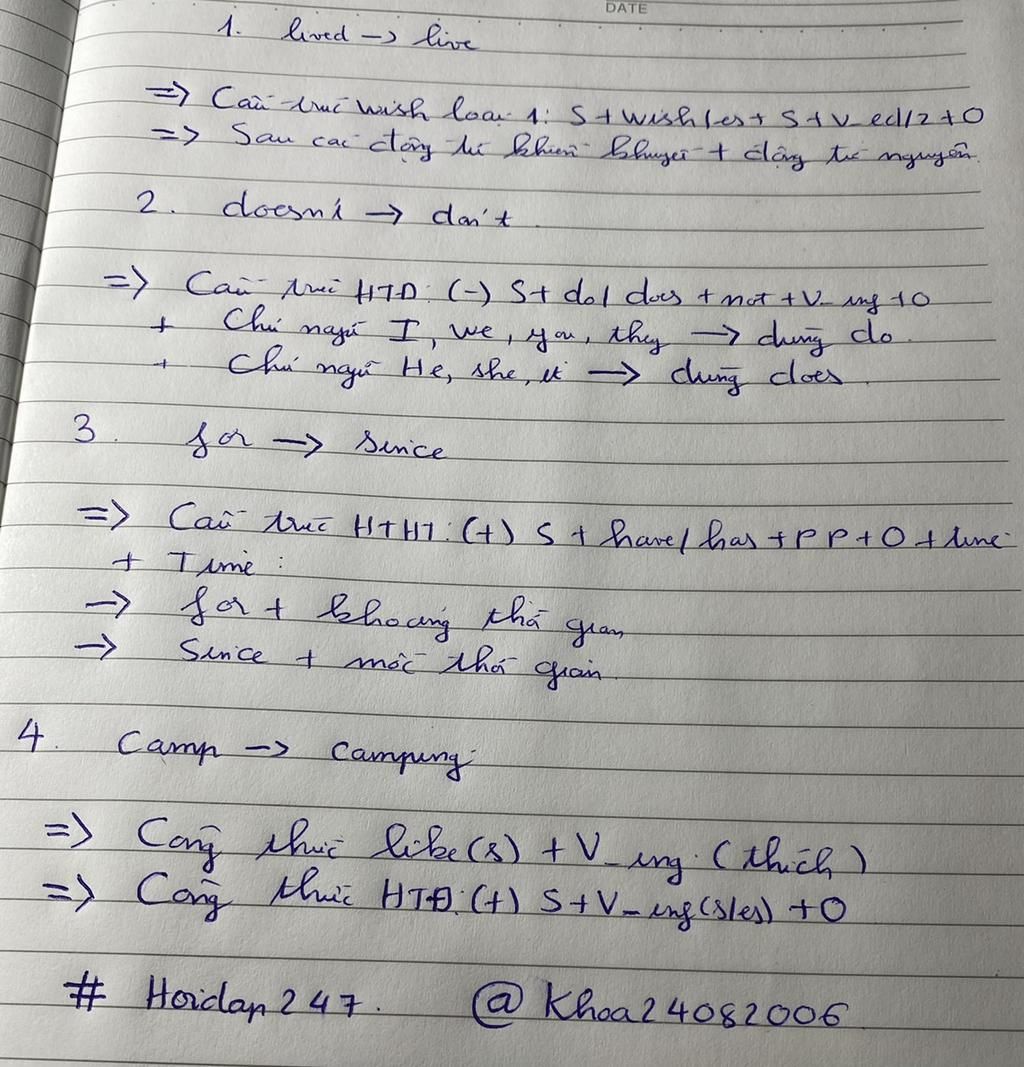 DATE
1. lived -> live
=> Cấu trúc wish loại 1: S + wish/es + S + V_ed/2 + O
=> Sau các động từ khiếm khuyết + động từ nguyên.
2. doesn't -> don't
=> Cấu trúc HTD: (-) S + do/does + not + V_ing + O
+ Chủ ngữ I, we, you, they -> dùng do.
+ Chủ ngữ He, she, it -> dùng does.
3. for -> since
=> Cấu trúc HTHT: (+) S + have/has + PP + O + time
+ Time:
-> for + khoảng thời gian
-> Since + mốc thời gian.
4. Camp -> camping
=> Công thức like(s) + V_ing. (thích)
=> Công thức HTĐ: (+) S + V_ing(s/es) + O
# Hoidap247. @Khoa24082006